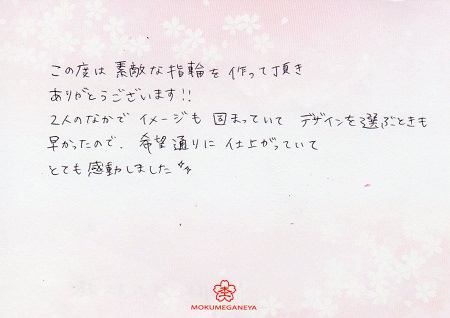 この度は 素敵な指輪を 作って頂き
ありがとうございます!!
2人のなかで イメージも 固まっていて デザインを選ぶときも
早かったので、希望通りに 仕上がっていて
とても感動しました
MOKUMEGANEYA